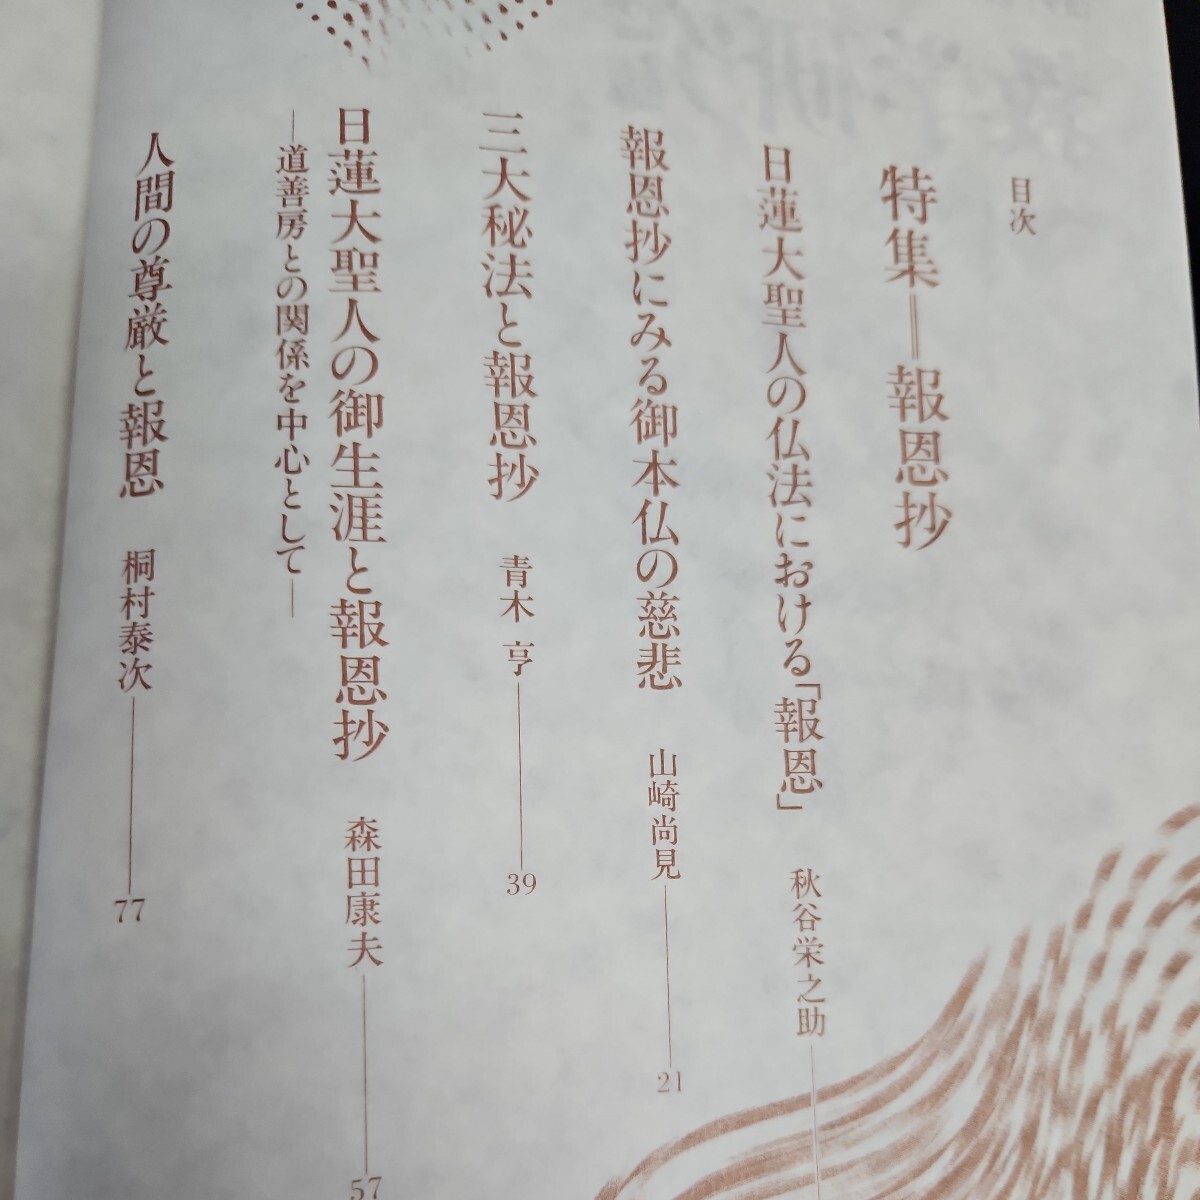 目次
特集＝報恩抄
日蓮大聖人の仏法における「報恩」　秋谷栄之助
報恩抄にみる御本仏の慈悲　山崎尚見　21
三大秘法と報恩抄　青木 亨　39
日蓮大聖人の御生涯と報恩抄　森田康夫　57
―道善房との関係を中心として―
人間の尊厳と報恩　桐村泰次　77